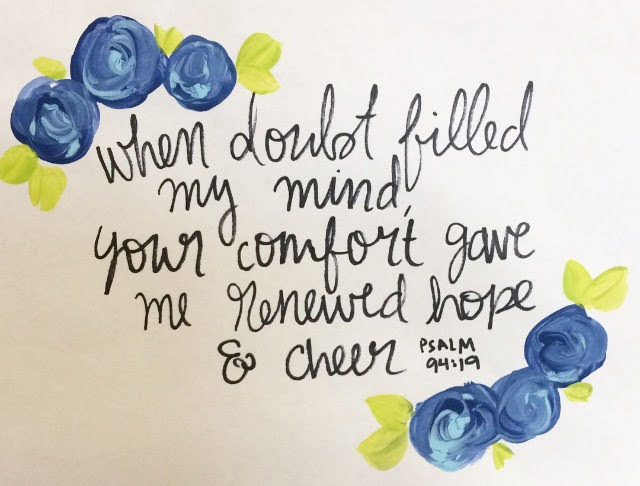 when doubt filled
my mind,
your comfort gave
me renewed hope
& cheer PSALM
94:19